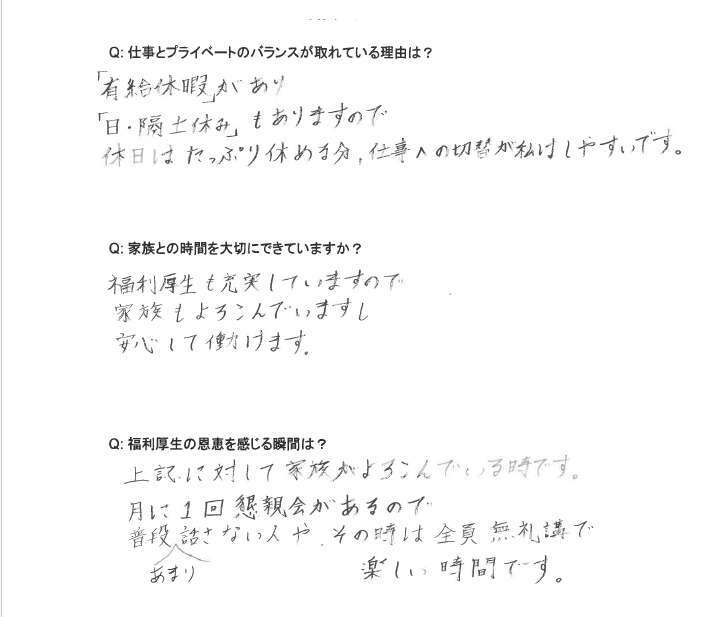 Q: 仕事とプライベートのバランスが取れている理由は？
「有給休暇」があり
「日・隔土休み」もありますので
休日はたっぷり休める分、仕事への切替が私はしやすいです。
Q: 家族との時間を大切にできていますか？
福利厚生も充実していますので
家族もよろこんでいますし
安心して働けます。
Q: 福利厚生の恩恵を感じる瞬間は？
上記に対して家族がよろこんでいる時です。
月に1回懇親会があるので
普段話さない人や、その時は全員無礼講で
あまり
楽しい時間です。